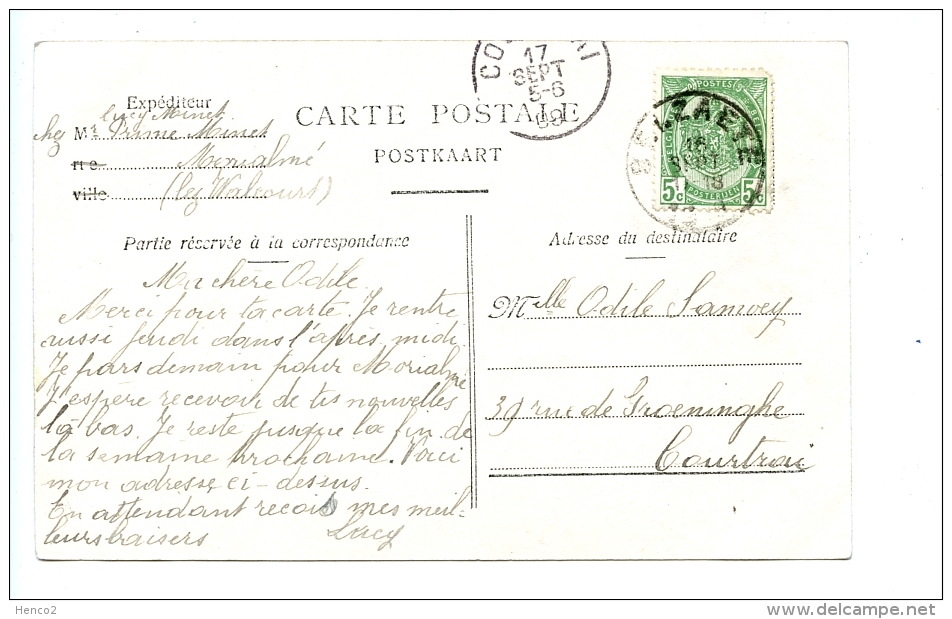 COURTRAI
17
SEPT
5-6
Expéditeur
Lucy Minet
chez Mr Prime Minet
rue Morialmé
ville (lez Walcourt)
CARTE POSTALE
POSTKAART
POSTES
SELZAETE
16
SEPT
18
5c POSTERIJEN 5c
Partie réservée à la correspondance
Adresse du destinataire
Ma chère Odile
Merci pour ta carte. Je rentre
aussi jeudi dans l'après midi
Je pars demain pour Morialmé
J'espère recevoir de tes nouvelles
là bas. Je reste jusque la fin de
la semaine prochaine. Voici
mon adresse ci-dessus.
En attendant reçois mes meil-
leurs baisers
Lucy
Mlle Odile
39 rue de Groeninghe
Courtrai
Henco2
www.delcampe.net